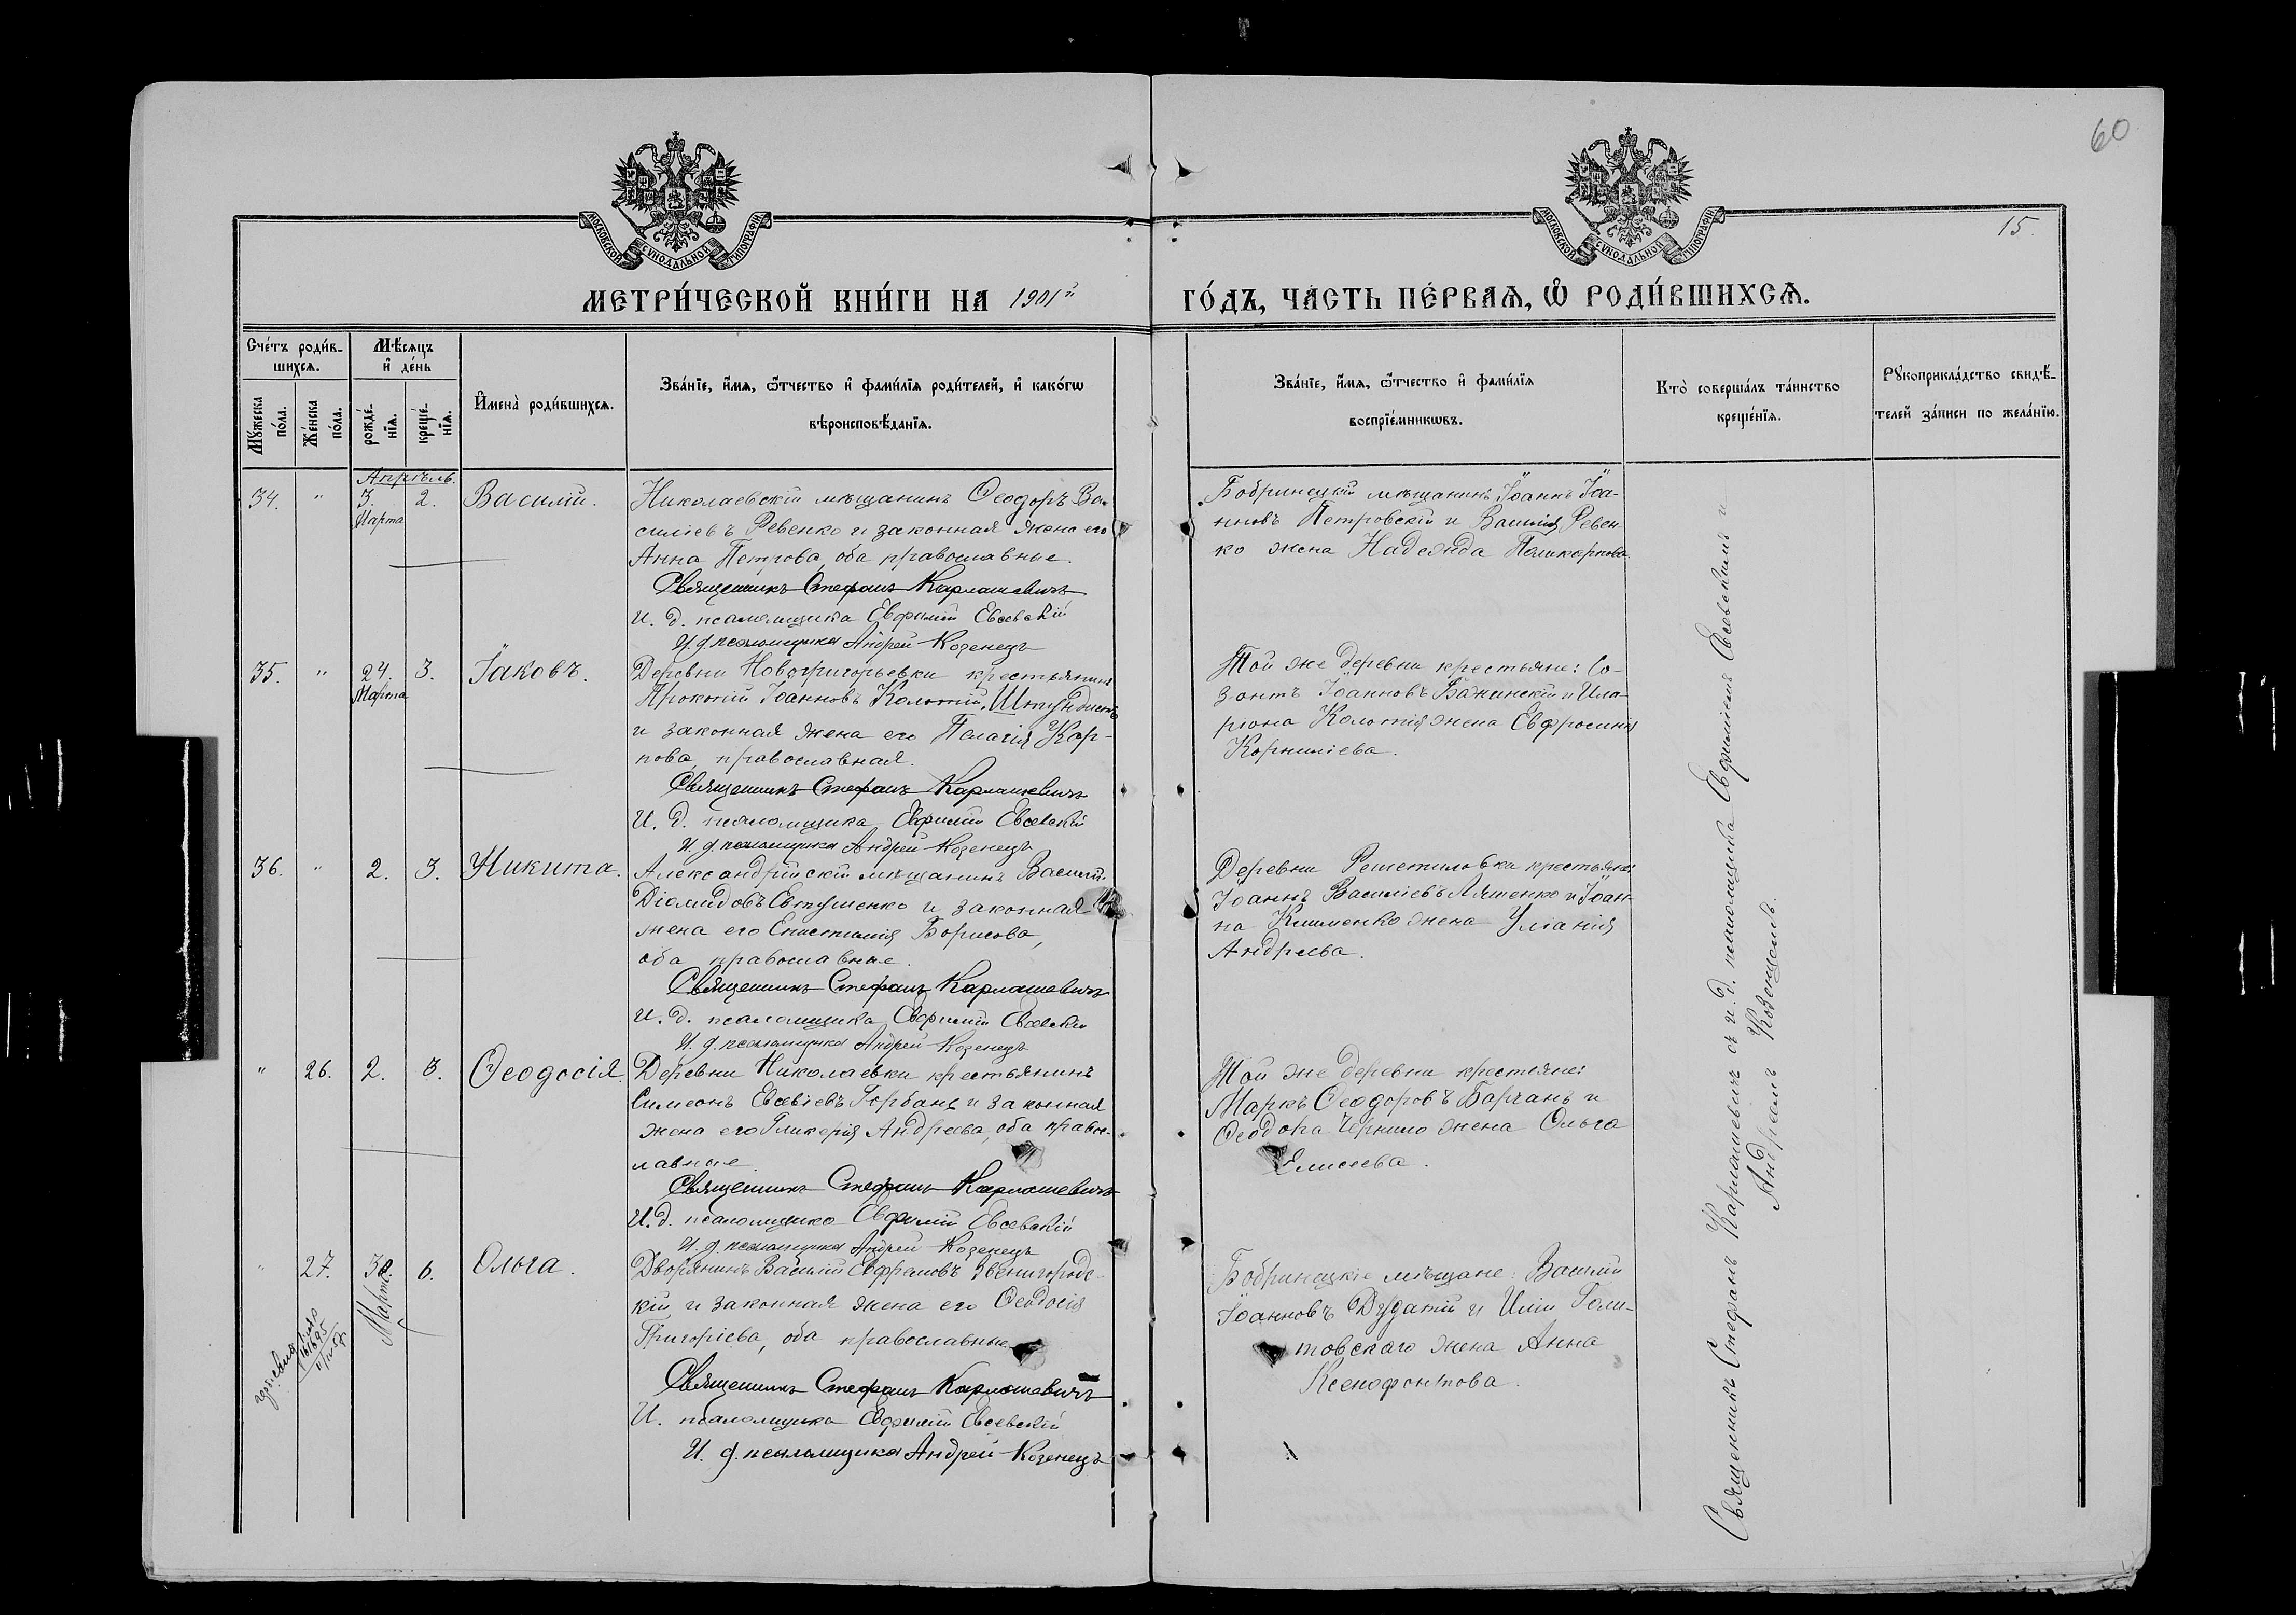 60
15.
МОСКОВСКОЙ СѴНОДАЛЬНОЙ ТИПОГРАФІИ
МОСКОВСКОЙ СѴНОДАЛЬНОЙ ТИПОГРАФІИ
МЕТРИ́ЧЕСКОЙ КНИ́ГИ НА 1901й
ГО́ДЪ, ЧА́СТЬ ПЕ́РВАѦ, Ѿ РОДИ́ВШИХСѦ.
Сче́тъ роди́в-
шихсѧ.
Мѣ́сѧцъ
и҆ де́нь
Мꙋ́жеска по́ла.
Же́нска по́ла.
рожде́-
нїѧ.
креще́-
нїѧ.
И҆мена̀ роди́вшихсѧ.
Зва́нїе, и҆́мѧ, ѻ҆́тчество и҆ фами́лїѧ роди́телей, и҆ како́гѡ
вѣроисповѣ́данїѧ.
Зва́нїе, и҆́мѧ, ѻ҆́тчество и҆ фами́лїѧ
воспрїе́мникѡвъ.
Кто̀ соверша́лъ та́инство
креще́нїѧ.
Рꙋкоприкла́дство свидѣ́-
телей за́писи по жела́нїю.
Апрѣль.
34. " 3. Марта 2. Василій.
Николаевскій мѣщанинъ Ѳеодоръ Ва-
силіевъ Ревенко и законная жена его
Анна Петрова, оба православные.
Священникъ Стефанъ Карлашевичъ
И. д. псаломщика Евфимій Евсевскій
И. д. псаломщика Андрей Козенецъ
Бобринецкій мѣщанинъ Іоаннъ Іоа-
нновъ Петровскій и Василія Ревен-
ко жена Надежда Поликарпова.
35. " 24. Марта 3. Іаковъ.
Деревни Новогригорьевки крестьянинъ
Прокопій Іоанновъ Колотій, Штундистъ
и законная жена его Пелагія Кар-
пова, православная.
Священникъ Стефанъ Карлашевичъ
И. д. псаломщика Евфимій Евсевскій
И. д. псаломщика Андрей Козенецъ
Той же деревни крестьяне: Со-
зонтъ Іоанновъ Бажинскій и Ила-
ріона Колотія жена Евфросинія
Корниліева.
36. " 2. 3. Никита.
Александрійскій мѣщанинъ Василій
Діомидовъ Евтушенко и законная
жена его Епистимія Борисова,
оба православные.
Священникъ Стефанъ Карлашевичъ
И. д. псаломщика Евфимій Евсевскій
И. д. псаломщика Андрей Козенецъ
Деревни Решетиловки крестьяне:
Іоаннъ Василіевъ Ляшенко и Іоан-
на Клименко жена Уліанія
Андреева.
" 26. 2. 3. Ѳеодосія.
Деревни Николаевки крестьянинъ
Симеонъ Евсевіевъ Горбань и законная
жена его Гликерія Андреева, оба правос-
лавные.
Священникъ Стефанъ Карлашевичъ
И. д. псаломщика Евфимій Евсевскій
И. д. псаломщика Андрей Козенецъ
Той же деревни крестьяне:
Маркъ Ѳеодоровъ Барчанъ и
Ѳеодора Чернило жена Ольга
Елисеева.
" 27. 30. Марта 6. Ольга.
Дворянинъ Василій Евфремовъ Звенигородс-
кій и законная жена его Ѳеодосія
Григоріева, оба православные.
Священникъ Стефанъ Карлашевичъ
И. псаломщика Евфимій Евсевскій
И. д. псаломщика Андрей Козенецъ
Бобринецкіе мѣщане: Василій
Іоанновъ и Иліи Голи-
товскаго жена Анна
Ксенофонтова.
Священникъ Стефанъ Карлашевичъ съ и. д. псаломщика Евфиміемъ Евсевскимъ и
Андреемъ Козенцемъ.